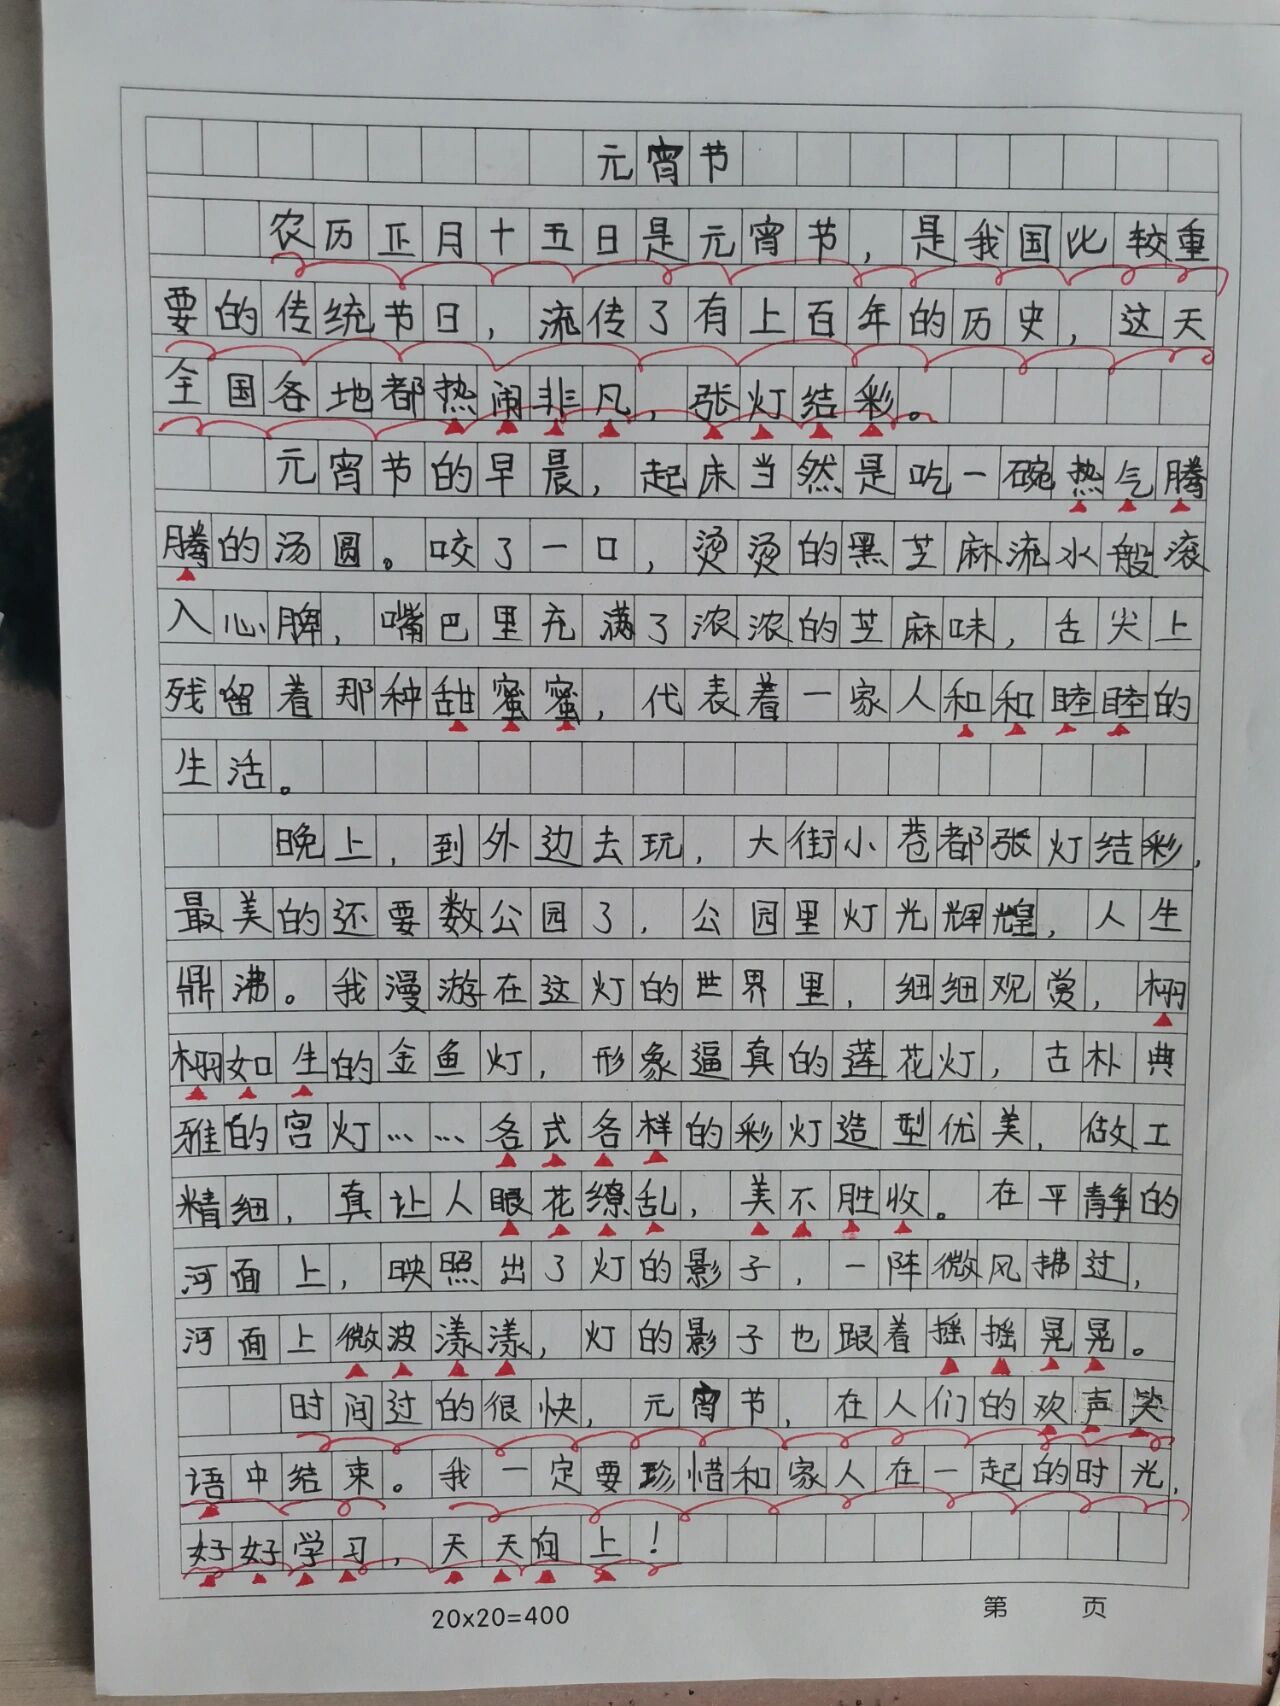 元宵节
农历正月十五日是元宵节，是我国比较重
要的传统节日，流传了有上百年的历史，这天
全国各地都热闹非凡，张灯结彩。
元宵节的早晨，起床当然是吃一碗热气腾
腾的汤圆。咬了一口，烫烫的黑芝麻流水般滚
入心脾，嘴巴里充满了浓浓的芝麻味，舌尖上
残留着那种甜蜜蜜，代表着一家人和和睦睦的
生活。
晚上，到外边去玩，大街小巷都张灯结彩，
最美的还要数公园了，公园里灯光辉煌，人生
鼎沸。我漫游在这灯的世界里，细细观赏，栩
栩如生的金鱼灯，形象逼真的莲花灯，古朴典
雅的宫灯……各式各样的彩灯造型优美，做工
精细，真让人眼花缭乱，美不胜收。在平静的
河面上，映照出了灯的影子，一阵微风拂过，
河面上微波漾漾，灯的影子也跟着摇摇晃晃。
时间过的很快，元宵节，在人们的欢声笑
语中结束。我一定要珍惜和家人在一起的时光，
好好学习，天天向上！
20x20=400
第 页